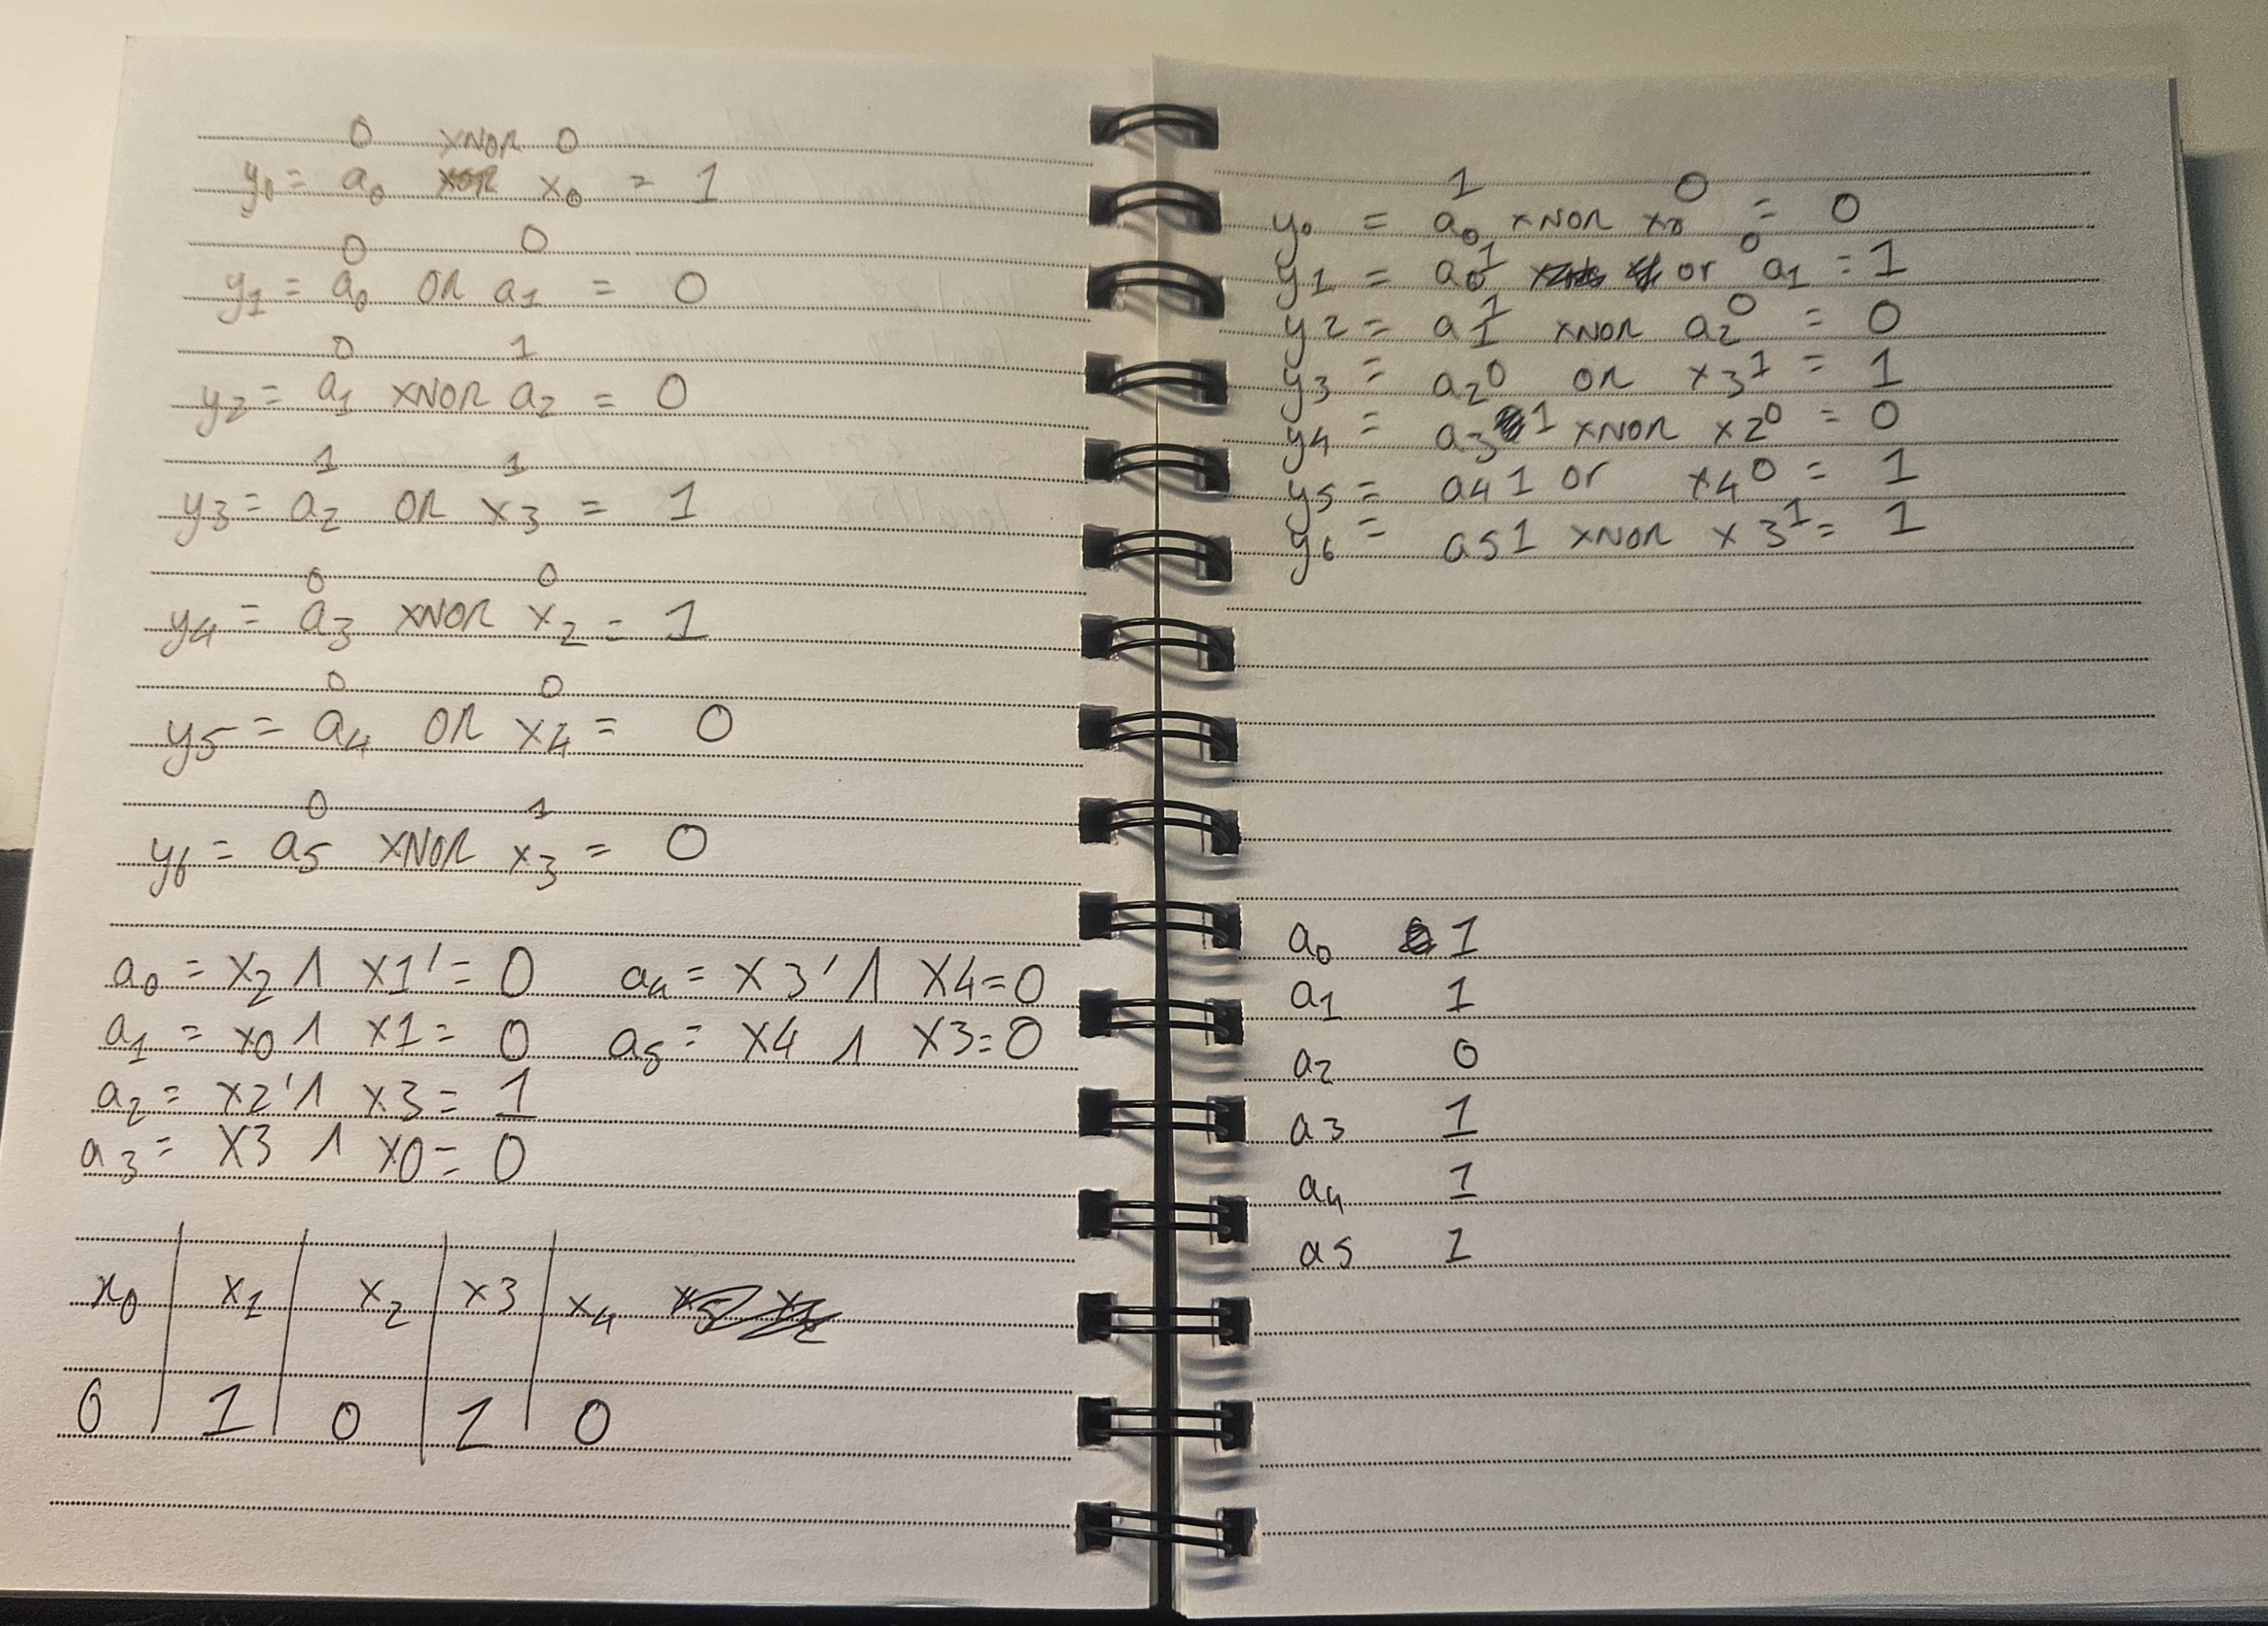 0 XNOR 0
y0 = a0 x0 = 1
0 0
y1 = a0 OR a1 = 0
0 1
y2 = a1 XNOR a2 = 0
1 1
y3 = a2 OR x3 = 1
0 0
y4 = a3 XNOR x2 = 1
0 0
y5 = a4 OR x4 = 0
0 1
y6 = a5 XNOR x3 = 0
a0 = x2 ∧ x1' = 0 a4 = x3' ∧ x4 = 0
a1 = x0 ∧ x1 = 0 a5 = x4 ∧ x3 = 0
a2 = x2' ∧ x3 = 1
a3 = x3 ∧ x0 = 0
x0 | x1 | x2 | x3 | x4
0 | 1 | 0 | 1 | 0
1 0
y0 = a0 XNOR x0 = 0
y1 = a0 1 or 0 a1 = 1
y2 = a1 1 XNOR a2 0 = 0
y3 = a2 0 OR x3 1 = 1
y4 = a3 1 XNOR x2 0 = 0
y5 = a4 1 or x4 0 = 1
y6 = a5 1 XNOR x3 1 = 1
a0 1
a1 1
a2 0
a3 1
a4 1
a5 1